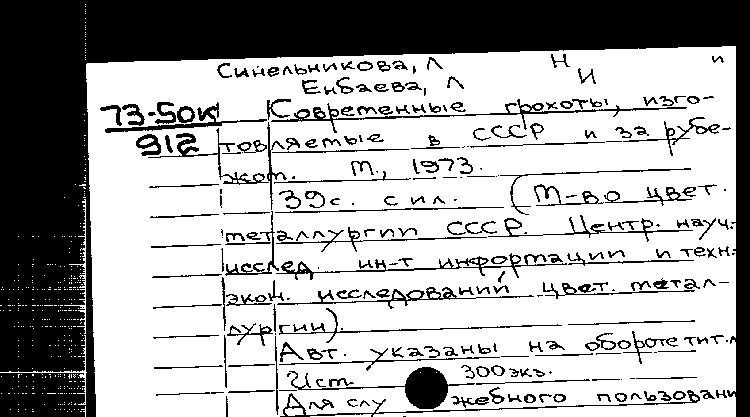 Синельникова, Л
Енбаева, Л
Н
И
и
73-50к
912
Современные грохоты, изго-
товляемые в СССР и за рубе-
жом. М., 1973.
39с. с ил. (М-во цвет.
металлургии СССР. Центр. науч.-
исслед. ин-т информации и техн.-
экон. исследований цвет. метал-
лургии).
Авт. указаны на обороте тит. л
300 экз.
Для служебного пользовани